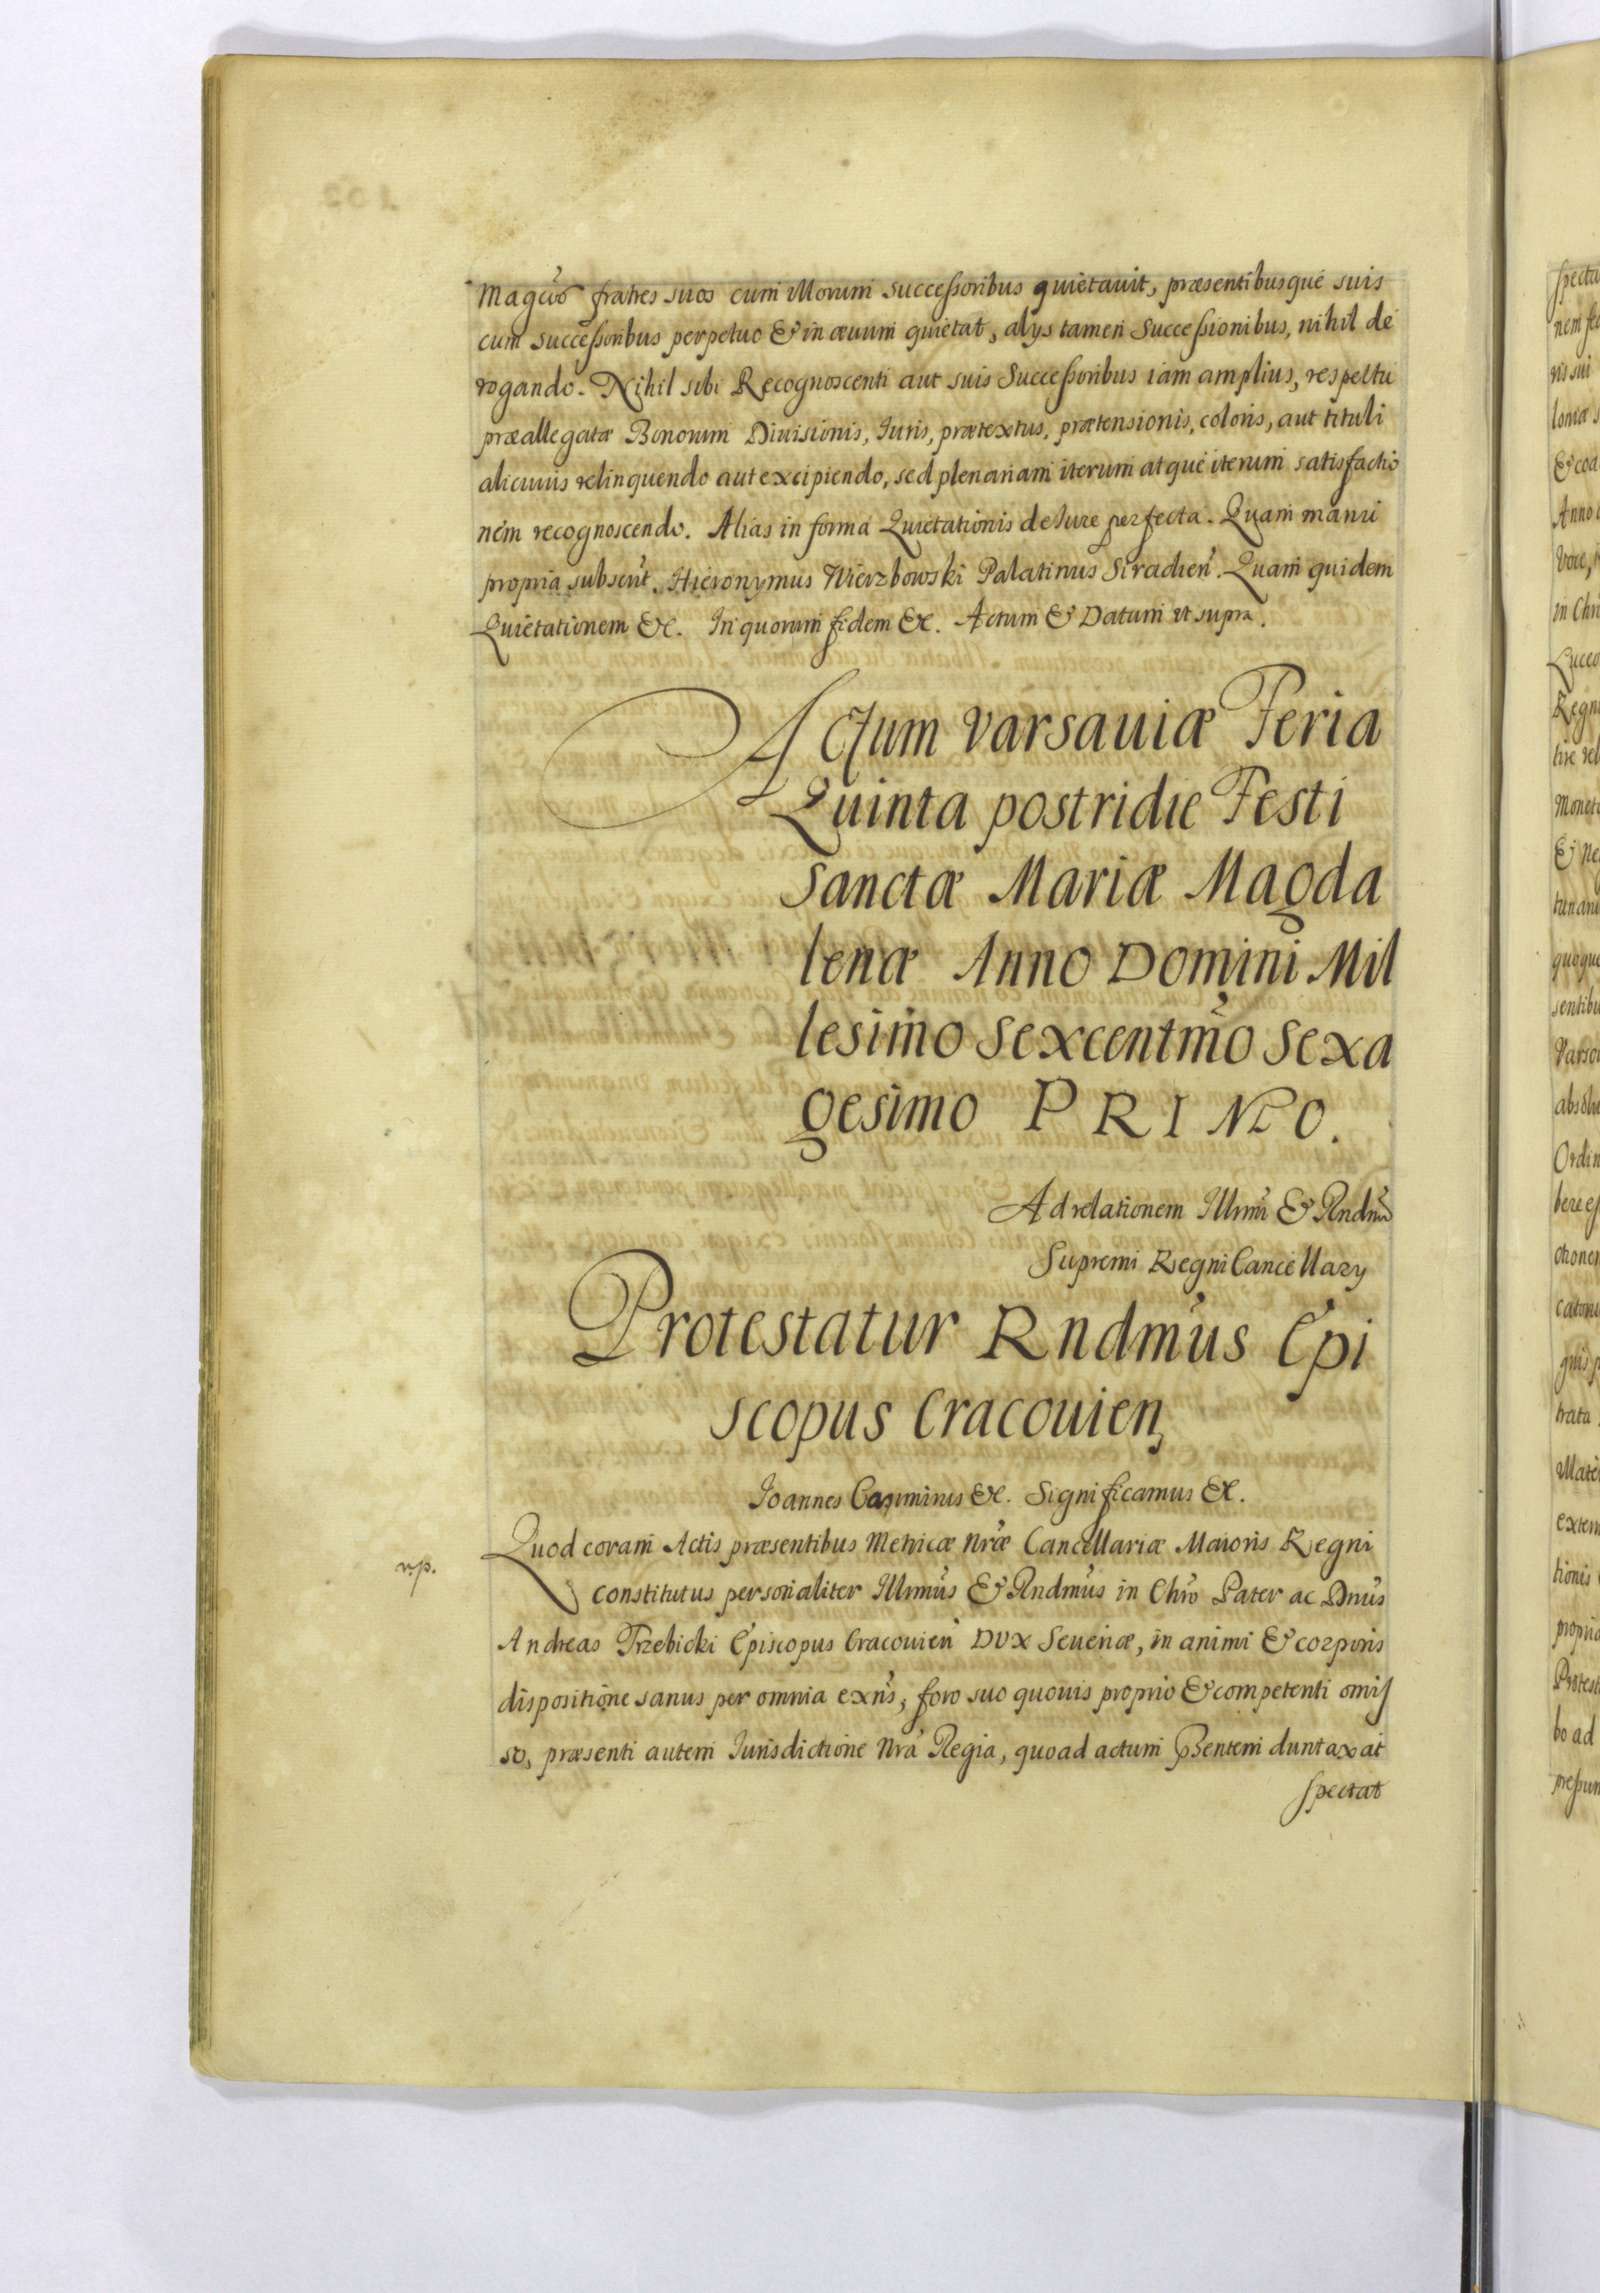 Magcos fratres suos cum illorum successoribus quietavit, præsentibusque suis
cum successoribus perpetuo & in ævum quietat, alys tamen successionibus, nihil de
rogando. Nihil sibi Recognoscenti aut suis Successoribus iam amplius, respectu
præallegatæ Bonorum Diuisionis, Iuris, prætextus, prætensionis, coloris, aut tituli
alicuius relinquendo aut excipiendo, sed plenariam iterum atque iterum satisfactio
nem recognoscendo. Alias in forma Quietationis de Iure perfecta. Quam manu
propria subscrit. Hieronymus Wierzbowski Palatinus Siradien. Quam quidem
Quietationem &c. In quorum fidem &c. Actum & Datum ut supra.
Actum Varsauiæ Feria
Quinta postridie Festi
Sanctæ Mariæ Magda
lenæ Anno Domini Mil
lesimo Sexcentmo Sexa
gesimo PRIMO.
Ad relationem Illmi & Rndmi
Supremi Regni Cancellary
Protestatur Rndmus Epi
scopus Cracouien
Ioannes Casimirus &c. Significamus &c.
Quod coram Actis præsentibus Metricæ Nræ Cancellariæ Maioris Regni
constitutus personaliter Illmus & Rndmus in Chro Pater ac Dnus
Andreas Trzebicki Episcopus Cracouien Dux Seueriæ, in animi & corporis
dispositione sanus per omnia exns, foro suo quouis proprio & competenti omis
so, præsenti autem Iurisdictione Nra Regia, quoad actum pntem duntaxat
spectat